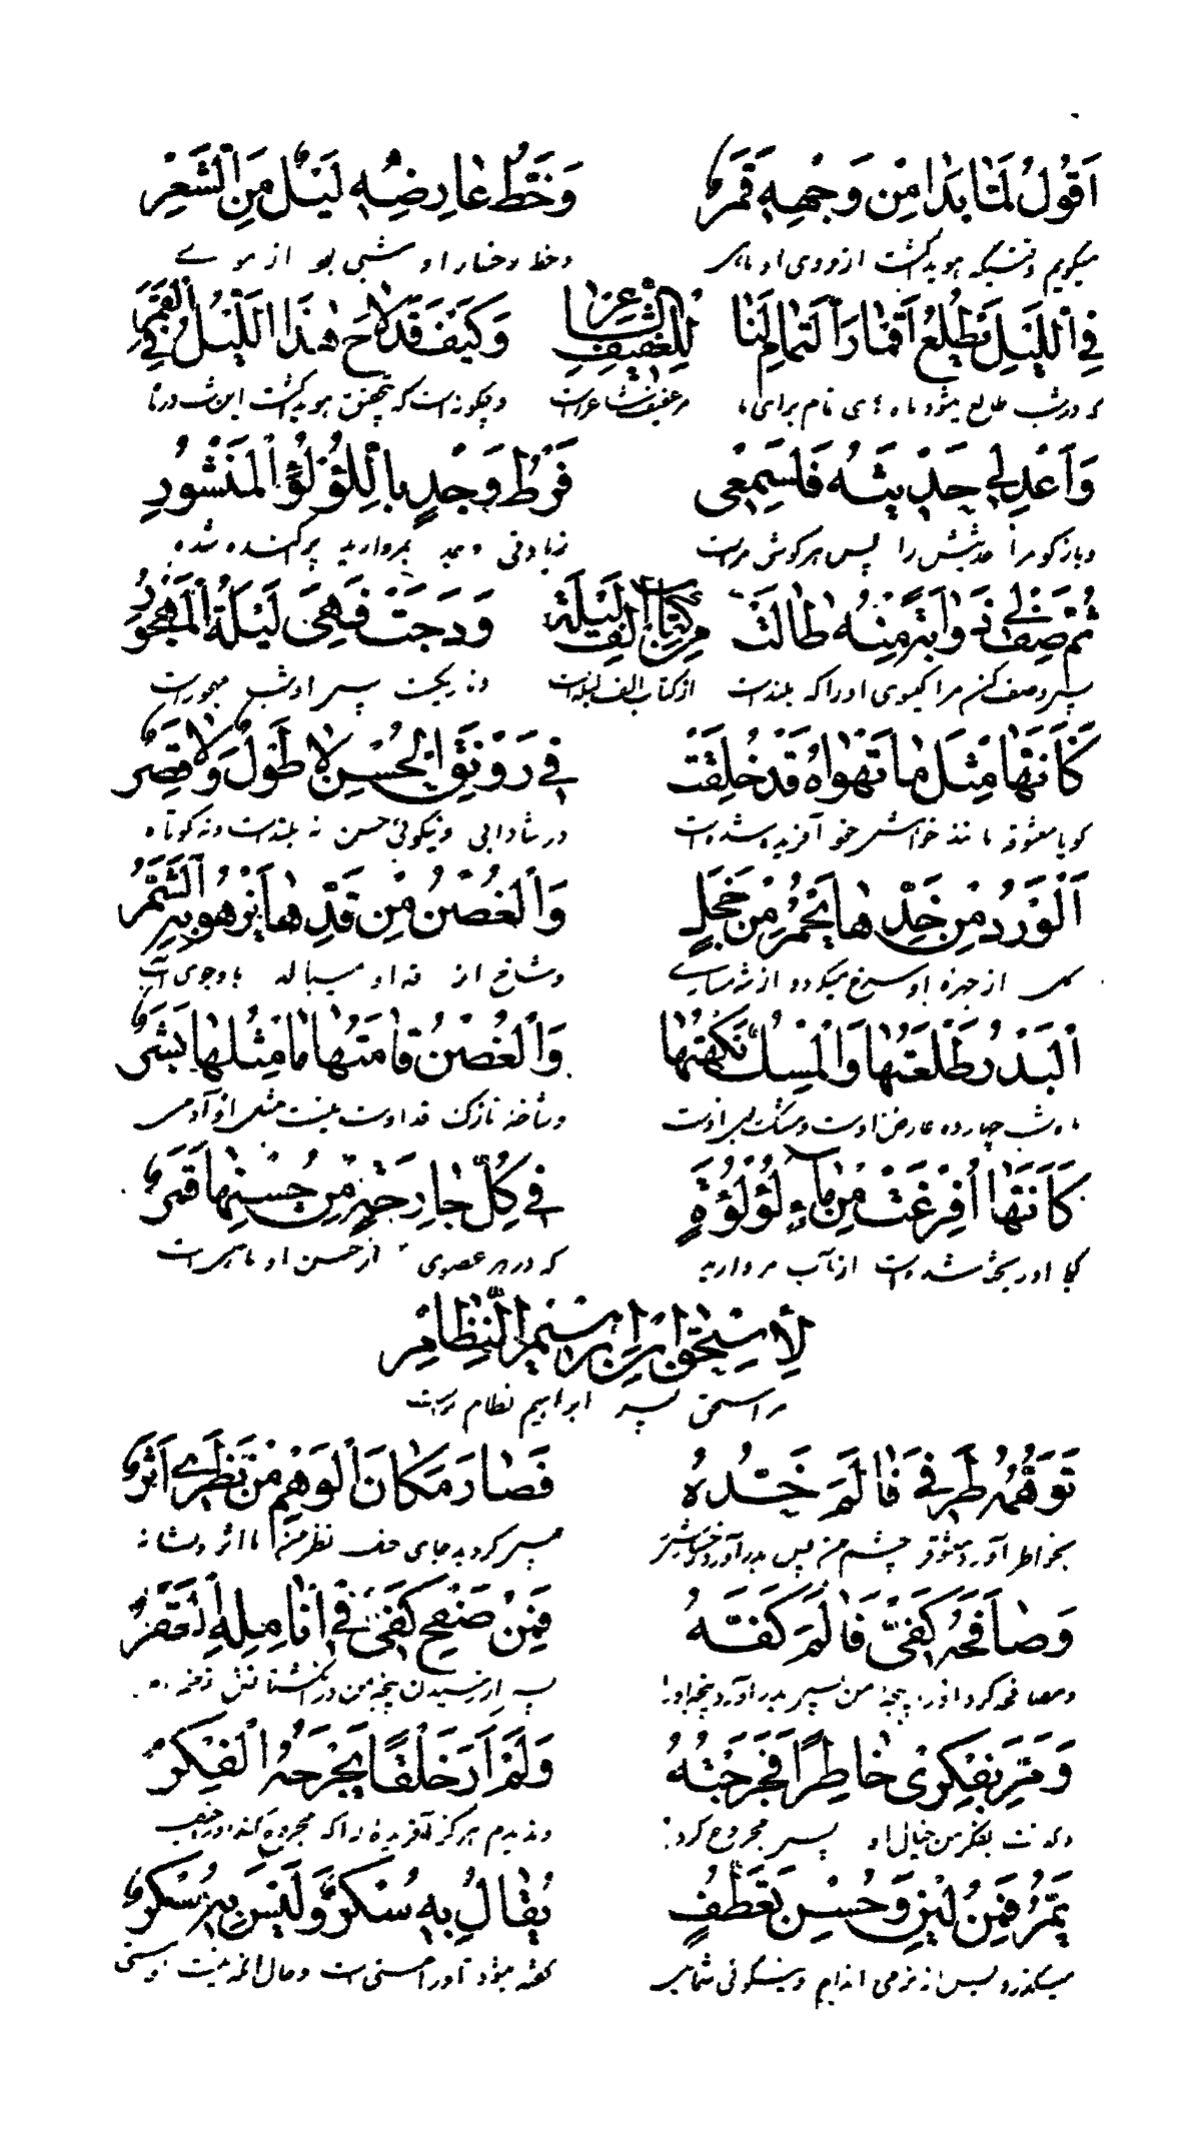 اَقُولُ لَمّا بَدا مِن وَجهِهٖ قَمَرٌ وَخَطَّ عارِضِهٖ لَيْلٌ مِنَ الشَّعْرِ
میگویم وقتیکه هویدا گشت از روی او ماهی وخط رخسار او شبی بو از موے
فِي اللَّيْلِ تَطْلُعُ اَقْمارُ التَّمامِ لَنا لِلعَفِيفِ الشّاعِر وَكَيْفَ قَدْ لاحَ هٰذا اللَّيْلُ فِي القَمَرِ
که درشب طالع میشود ماه های تمام برای ما مر عفیف شاعر است وچگونه است که تحقیق هویدا گشت این شب درماه
وَاَعِدْ لِي حَدِيثَهُ فَلِسَمْعِي فَرْطُ وَجْدٍ بِاللُّؤْلُؤِ المَنْثُورِ
وبازگو مرا حدیثش را پس هرگوش مراست زیادتی وجد بمروارید پراکنده شده
ثُمَّ صِفْ لِي ذَوابَةً مِنْهُ طالَتْ مِن كِتابِ اَلْفِ لَيْلَة وَدَجَتْ فَهِيَ لَيْلَةُ المَهْجُورِ
پس وصف کن مرا گیسوی او را که بلندست از کتاب الف لیله است وتاریکست پس او شب مهجورست
كَاَنَّها مِثْلَ ما تَهْواهُ قَدْ خُلِقَتْ فِي رَوْنَقِ الحُسْنِ لا طُولٌ وَلا قِصَرٌ
گویا معشوقه مانند خواهش خو آفریده شده است در شادابی ونیکوئی حسن نه بلندست ونه کوتاه
اَلْوَرْدُ مِن خَدِّها يَحْمَرُّ مِن خَجَلٍ وَالْغُصْنُ مِن قَدِّها يَزْهُو بِهِ الثَّمَرُ
گل از چهره او سرخ میگردد از شرمساری وشاخ از قد او میبالد
اَلْبَدْرُ طَلْعَتُها وَالْمِسْكُ نَكْهَتُها وَالْغُصْنُ قامَتُها ما مِثْلُها بَشَرٌ
ماه شب چهارده عارض اوست ومشک بوی اوست وشاخه نازک قد اوست نیست مثل او آدمی
كَاَنَّها اُفْرِغَتْ مِن ماءِ لُؤْلُؤَةٍ فِي كُلِّ جارِحَةٍ مِن حُسْنِها قَمَرٌ
گویا او ریخته شده است از آب مروارید که در هر عضوی از حسن او ماهیست
لِاِسْحٰقَ بْنِ اِبْرٰهِيمَ النَّظّام
مر اسحق پسر ابراهیم نظام راست
تَوَهَّمَهُ طَرْفِي فَآلَمَ خَدَّهُ فَصارَ مَكانَ الوَهْمِ مِن نَظَرِي اَثَرٌ
بخواطر آورد معشوق چشم من پس بدرد آورد رخسارش پس گردید جای نظر من اثر ونشانه
وَصافَحَهُ كَفِّي فَآلَمَ كَفَّهُ فَمِنْ صَفْحِ كَفِّي فِي اَنامِلِهِ عَقْرٌ
ومصافحه کرد او را پنجه من پس بدرد آورد پنجه او را پس از رسیدن پنجه من در انگشتانش زخم
وَمَرَّ بِفِكْرِي خاطِرًا فَجَرَحْتُهُ وَلَمْ اَرَ خَلْقًا يَجْرَحُهُ الفِكْرُ
وگذشت بفکر من خیال او پس مجروح کردم وندیدم هرگز آفریده را که مجروح کند
يَمُرُّ فَمِنْ لِينٍ وَحُسْنِ تَعَطُّفٍ يُقالُ بِهٖ سُكْرٌ وَلَيْسَ بِهٖ سُكْرٌ
میگذرد پس از نرمی اندام ونیکوئی شمایل گفته میشود او را مستی ست وحال آنکه نیست مستی